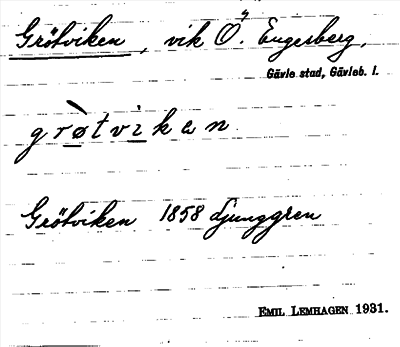 Grötviken, vik Ö. Engesberg,
Gävle stad, Gävleb. l.
grø̀tviken
Grötviken 1858 Ljunggren
EMIL LEMHAGEN 1931.